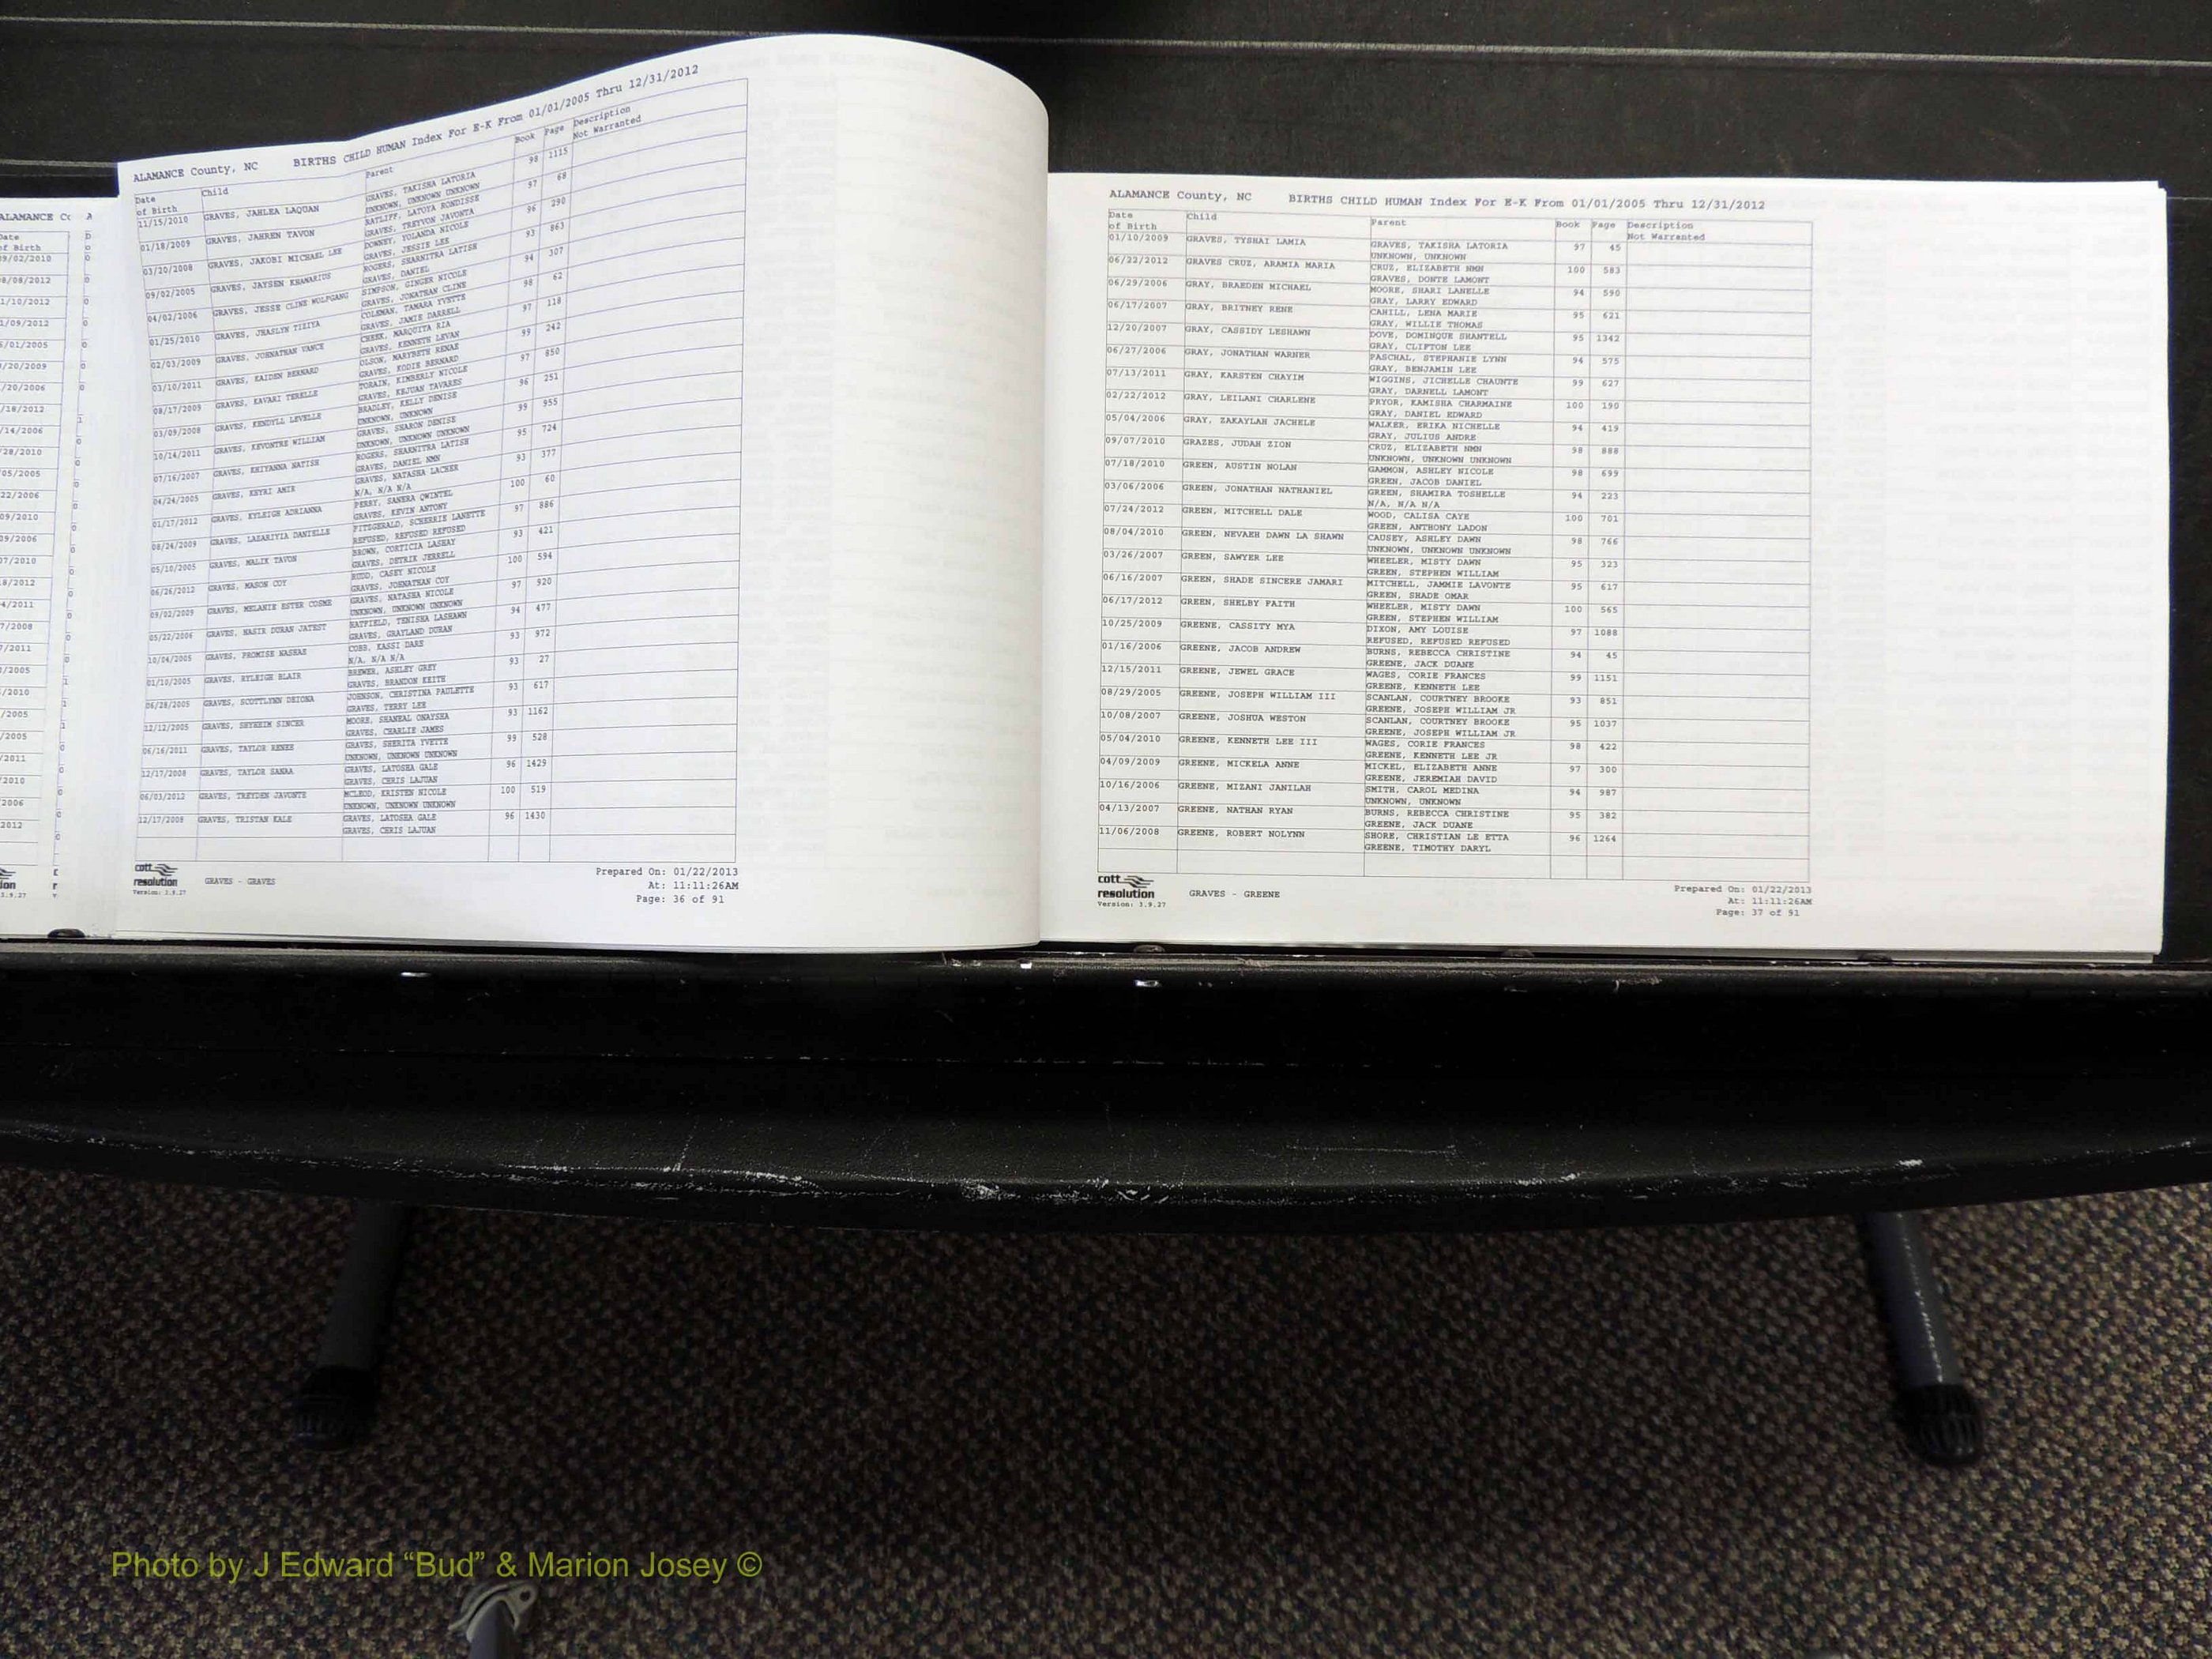 ALAMANCE County, NC BIRTHS CHILD HUMAN Index For E-K From 01/01/2005 Thru 12/31/2012
Date of Birth Child Parent Book Page Description Not Warranted
11/15/2010 GRAVES, JAHLEA LAQUAN GRAVES, TAKISHA LATORIA 98 1115
UNKNOWN, UNKNOWN UNKNOWN
01/18/2009 GRAVES, JAHREN TAVON RATLIFF, LATOYA RONDISSE 97 68
GRAVES, TREYVON JAVONTA
03/20/2008 GRAVES, JAKOBI MICHAEL LEE DOWNEY, YOLANDA NICOLE 96 290
GRAVES, JESSIE LEE
09/02/2005 GRAVES, JAYSEN KHAMARIUS ROGERS, SHARNITRA LATISH 93 863
GRAVES, DANIEL
04/02/2006 GRAVES, JESSE CLINE WOLFGANG SIMPSON, GINGER NICOLE 94 307
GRAVES, JONATHAN CLINE
01/25/2010 GRAVES, JHASLYN TIZIYA COLEMAN, TAMARA YVETTE 98 62
GRAVES, JAMIE DARRELL
02/03/2009 GRAVES, JOHNATHAN VANCE CHEEK, MARQUITA RIA 97 118
GRAVES, KENNETH LEVAN
03/10/2011 GRAVES, KAIDEN BERNARD OLSON, MARYBETH RENAE 99 242
GRAVES, KODIE BERNARD
08/17/2009 GRAVES, KAVARI TERELLE TORAIN, KIMBERLY NICOLE 97 850
GRAVES, KEJUAN TAVARES
03/09/2008 GRAVES, KENDYLL LEVELLE BRADLEY, KELLY DENISE 96 251
UNKNOWN, UNKNOWN
10/14/2011 GRAVES, KEVONTRE WILLIAM GRAVES, SHARON DENISE 99 955
UNKNOWN, UNKNOWN UNKNOWN
07/16/2007 GRAVES, KHIYANNA NATISH ROGERS, SHARNITRA LATISH 95 724
GRAVES, DANIEL NMN
04/24/2005 GRAVES, KHYRI AMIR GRAVES, NATASHA LACHER 93 377
N/A, N/A N/A
01/17/2012 GRAVES, KYLEIGH ADRIANNA PERRY, SANERA QWINTEL 100 60
GRAVES, KEVIN ANTONY
08/24/2009 GRAVES, LAZARIYIA DANIELLE FITZGERALD, SCHERRIE LANETTE 97 886
REFUSED, REFUSED REFUSED
05/10/2005 GRAVES, MALIK TAVON BROWN, CORTICIA LASHAY 93 421
GRAVES, DETRIK JERRELL
06/26/2012 GRAVES, MASON COY RUDD, CASEY NICOLE 100 594
GRAVES, JOHNATHAN COY
09/02/2009 GRAVES, MELANIE ESTER COSME GRAVES, NATASHA NICOLE 97 920
UNKNOWN, UNKNOWN UNKNOWN
05/22/2006 GRAVES, NASIR DURAN JATEST HATFIELD, TENISHA LASHAWN 94 477
GRAVES, GRAYLAND DURAN
10/04/2005 GRAVES, PROMISE NASHAE COBB, KASSI DARE 93 972
N/A, N/A N/A
01/10/2005 GRAVES, RYLEIGH BLAIR BREWER, ASHLEY GREY 93 27
GRAVES, BRANDON KEITH
06/28/2005 GRAVES, SCOTTLYNN DEIONA JOHNSON, CHRISTINA PAULETTE 93 617
GRAVES, TERRY LEE
12/12/2005 GRAVES, SHYHEIM SINCER MOORE, SHANEAL ONAYSHA 93 1162
GRAVES, CHARLIE JAMES
06/16/2011 GRAVES, TAYLOR RENEE GRAVES, SHERITA YVETTE 99 528
UNKNOWN, UNKNOWN UNKNOWN
12/17/2008 GRAVES, TAYLOR SANAA GRAVES, LATOSHA GALE 96 1429
GRAVES, CHRIS LAJUAN
06/03/2012 GRAVES, TREYDEN JAVONTE MCLEOD, KRISTEN NICOLE 100 519
UNKNOWN, UNKNOWN UNKNOWN
12/17/2008 GRAVES, TRISTAN KALE GRAVES, LATOSHA GALE 96 1430
GRAVES, CHRIS LAJUAN
cott resolution Version: 3.9.27
GRAVES - GRAVES
Prepared On: 01/22/2013
At: 11:11:26AM
Page: 36 of 91
ALAMANCE County, NC BIRTHS CHILD HUMAN Index For E-K From 01/01/2005 Thru 12/31/2012
Date of Birth Child Parent Book Page Description Not Warranted
01/10/2009 GRAVES, TYSHAI LAMIA GRAVES, TAKISHA LATORIA 97 45
UNKNOWN, UNKNOWN
06/22/2012 GRAVES CRUZ, ARAMIA MARIA CRUZ, ELIZABETH NMN 100 583
GRAVES, DONTE LAMONT
06/29/2006 GRAY, BRAEDEN MICHAEL MOORE, SHARI LANELLE 94 590
GRAY, LARRY EDWARD
06/17/2007 GRAY, BRITNEY RENE CAHILL, LENA MARIE 95 621
GRAY, WILLIE THOMAS
12/20/2007 GRAY, CASSIDY LESHAWN DOVE, DOMINQUE SHANTELL 95 1342
GRAY, CLIFTON LEE
06/27/2006 GRAY, JONATHAN WARNER PASCHAL, STEPHANIE LYNN 94 575
GRAY, BENJAMIN LEE
07/13/2011 GRAY, KARSTEN CHAYIM WIGGINS, JICHELLE CHAUNTE 99 627
GRAY, DARNELL LAMONT
02/22/2012 GRAY, LEILANI CHARLENE PRYOR, KAMISHA CHARMAINE 100 190
GRAY, DANIEL EDWARD
05/04/2006 GRAY, ZAKAYLAH JACHELE WALKER, ERIKA NICHELLE 94 419
GRAY, JULIUS ANDRE
09/07/2010 GRAZES, JUDAH ZION CRUZ, ELIZABETH NMN 98 888
UNKNOWN, UNKNOWN UNKNOWN
07/18/2010 GREEN, AUSTIN NOLAN GAMMON, ASHLEY NICOLE 98 699
GREEN, JACOB DANIEL
03/06/2006 GREEN, JONATHAN NATHANIEL GREEN, SHAMIRA TOSHELLE 94 223
N/A, N/A N/A
07/24/2012 GREEN, MITCHELL DALE WOOD, CALISA CAYE 100 701
GREEN, ANTHONY LADON
08/04/2010 GREEN, NEVAEH DAWN LA SHAWN CAUSEY, ASHLEY DAWN 98 766
UNKNOWN, UNKNOWN UNKNOWN
03/26/2007 GREEN, SAWYER LEE WHEELER, MISTY DAWN 95 323
GREEN, STEPHEN WILLIAM
06/16/2007 GREEN, SHADE SINCERE JAMARI MITCHELL, JAMMIE LAVONTE 95 617
GREEN, SHADE OMAR
06/17/2012 GREEN, SHELBY FAITH WHEELER, MISTY DAWN 100 565
GREEN, STEPHEN WILLIAM
10/25/2009 GREENE, CASSITY MYA DIXON, AMY LOUISE 97 1088
REFUSED, REFUSED REFUSED
01/16/2006 GREENE, JACOB ANDREW BURNS, REBECCA CHRISTINE 94 45
GREENE, JACK DUANE
12/15/2011 GREENE, JEWEL GRACE WAGES, CORIE FRANCES 99 1151
GREENE, KENNETH LEE
08/29/2005 GREENE, JOSEPH WILLIAM III SCANLAN, COURTNEY BROOKE 93 851
GREENE, JOSEPH WILLIAM JR
10/08/2007 GREENE, JOSHUA WESTON SCANLAN, COURTNEY BROOKE 95 1037
GREENE, JOSEPH WILLIAM JR
05/04/2010 GREENE, KENNETH LEE III WAGES, CORIE FRANCES 98 422
GREENE, KENNETH LEE JR
04/09/2009 GREENE, MICKELA ANNE MICKEL, ELIZABETH ANNE 97 300
GREENE, JEREMIAH DAVID
10/16/2006 GREENE, MIZANI JANILAH SMITH, CAROL MEDINA 94 987
UNKNOWN, UNKNOWN
04/13/2007 GREENE, NATHAN RYAN BURNS, REBECCA CHRISTINE 95 382
GREENE, JACK DUANE
11/06/2008 GREENE, ROBERT NOLYNN SHORE, CHRISTIAN LE ETTA 96 1264
GREENE, TIMOTHY DARYL
cott resolution Version: 3.9.27
GRAVES - GREENE
Prepared On: 01/22/2013
At: 11:11:26AM
Page: 37 of 91
Photo by J Edward “Bud” & Marion Josey ©